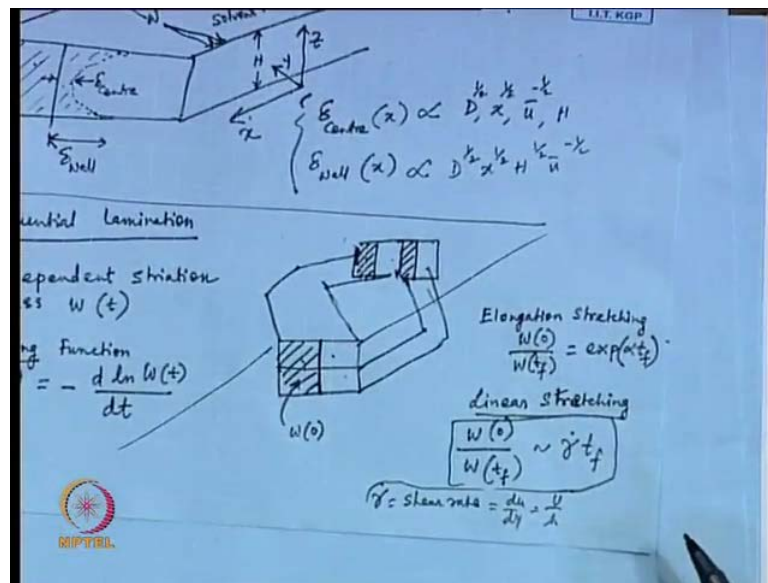 I.I.T. KGP
Solvent
W
H
z
y
x
δ_centre
δ_wall
δ_centre (x) ∝ D^½, x^½, ū^-½, H
δ_wall (x) ∝ D^½ x^½ H^½ ū^-½
uential Lamination
ependent striation
ss W(t)
ng Function
= - d ln W(t) / dt
W(0)
Elongation Stretching
W(0) / W(t_f) = exp(αt_f)
Linear Stretching
W(0) / W(t_f) ~ γ̇ t_f
γ̇ = Shear rate = du/dy = U/h
NPTEL